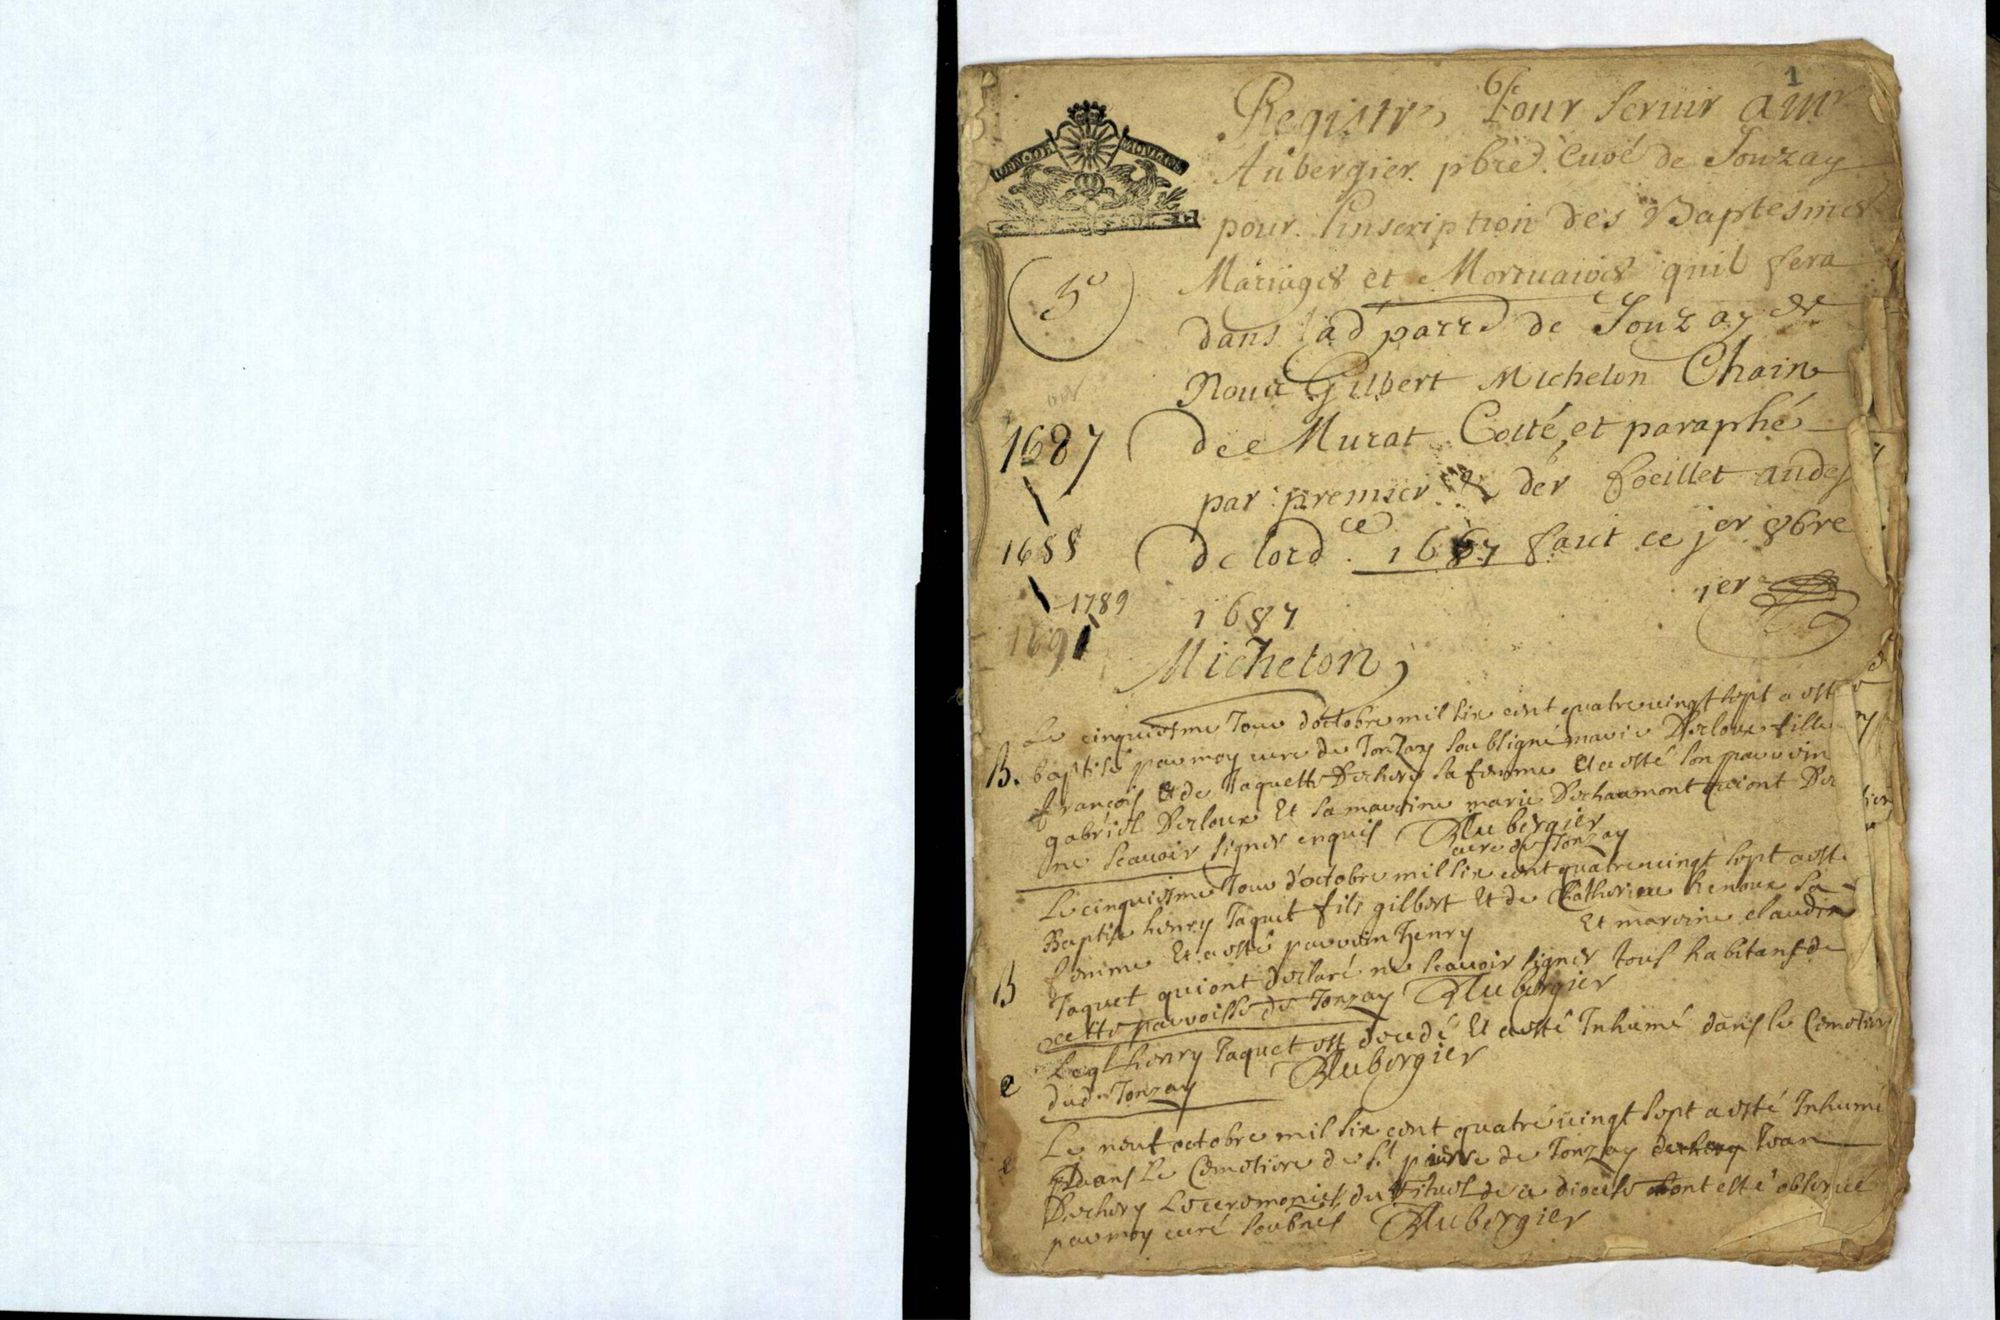 1
Registre, Pour servir a Mr
Aubergier pbre Curé de Jonzay
pour l'inscription des Baptesmes
Mariages et Mortuaires quil fera
5e
dans lad parr de Jonzay
Nous Gilbert Michelon Chain
1687
de Murat Cotté et paraphé
par premier & der foeillet au des
1688
de lordce 1667 fait ce jer 8bre
1789
1687
jer
1691
Michelon
Le cinquiesme Jour d'octobre mil six cent quatre vingt sept a esté
B. baptisé par moy curé de Jonzay soubsigné marie Decloux fille
françois et de Jaquette Dechery sa femme et a esté son parrin
gabriel Decloux Et sa maraine marie Dechaumont qui ont
ne scavoir signer enquis Aubergier
curé de Jonzay
Le cinquiesme Jour d'octobre mil six cent quatre vingt sept a esté
Baptisé henry Jaquet fils gilbert Et de Catherine Renoux sa
femme Et a esté parrin henry Et maraine claudine
B Jaquet qui ont declaré ne scavoir signer tous habitans de
cette parroisse de Jonzay Aubergier
Led henry Jaquet est decedé Et a esté Inhumé dans le Cemetiere
e dud Jonzay Aubergier
Le neuf octobre mil six cent quatre vingt sept a esté Inhumé
e Dans le Cemetiere de st pierre de Jonzay Jean
Dechery Les ceremonies du Rituel de ce diocese ont esté observé
par moy curé soubsné Aubergier